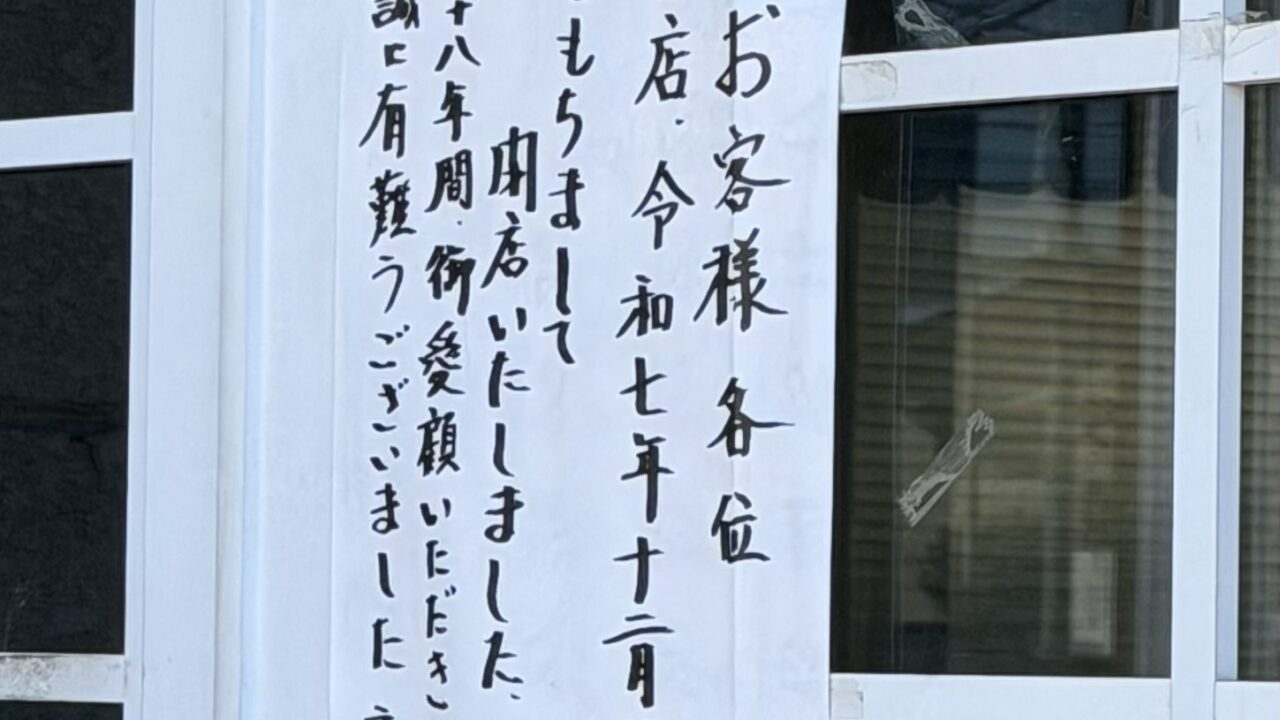 お客様各位
店、令和七年十二月
もちまして
閉店いたしました、
十八年間、御愛顧いただき
誠に有難うございました